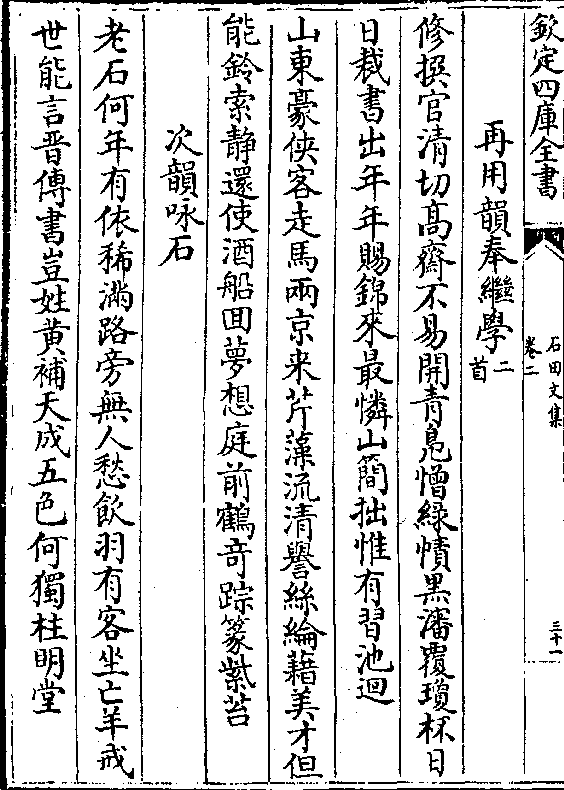 欽定四庫全書
石田文集
卷二
三十一
再用韻奉繼學二首
修撰官清切髙齋不易開青鳬憎緑幘黒瀋覆瓊杯日
日裁書出年年賜錦來最憐山簡拙惟有習池迴
山東豪俠客走馬兩京来芹藻流清譽絲綸藉美才但
能鈴索静還使酒船回夢想庭前鶴竒踪篆紫苔
次韻咏石
老石何年有依稀滿路旁無人愁飲羽有客坐亡羊戒
世能言晋傳書豈姓黄補天成五色何獨柱明堂